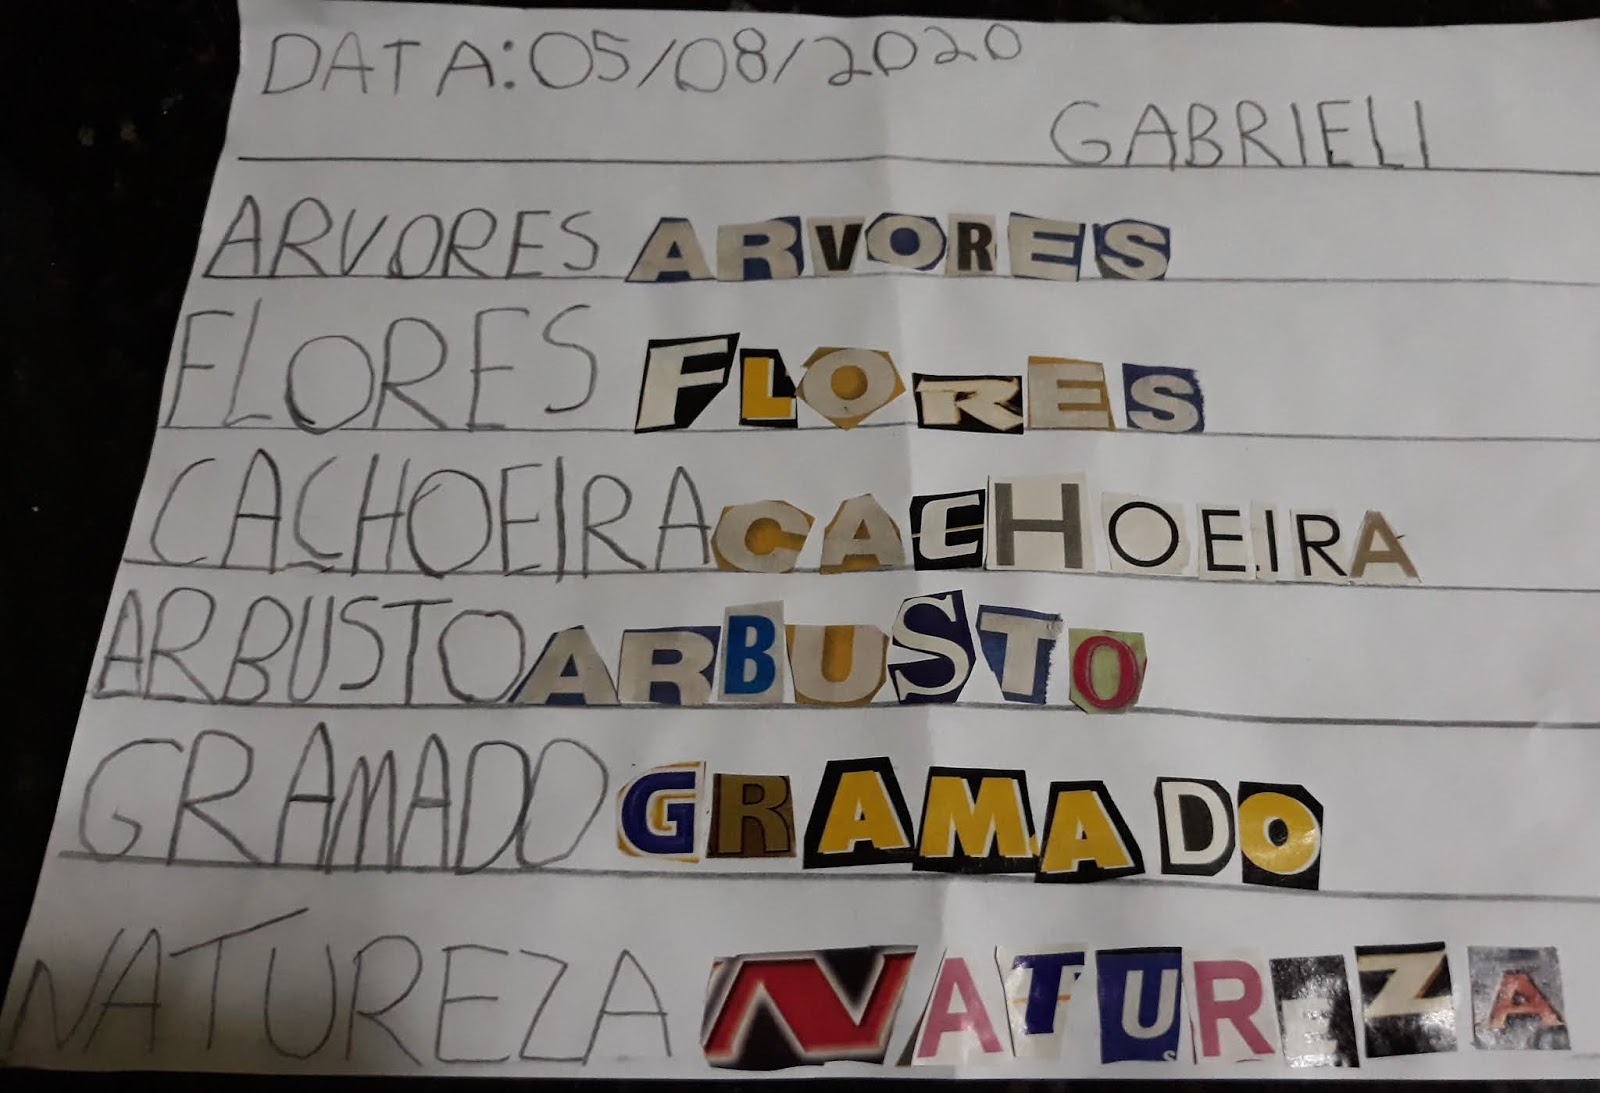 DATA: 05/08/2020
GABRIELI
ARVORES ARVORES
FLORES FLORES
CACHOEIRA CACHOEIRA
ARBUSTO ARBUSTO
GRAMADO GRAMADO
NATUREZA NATUREZA